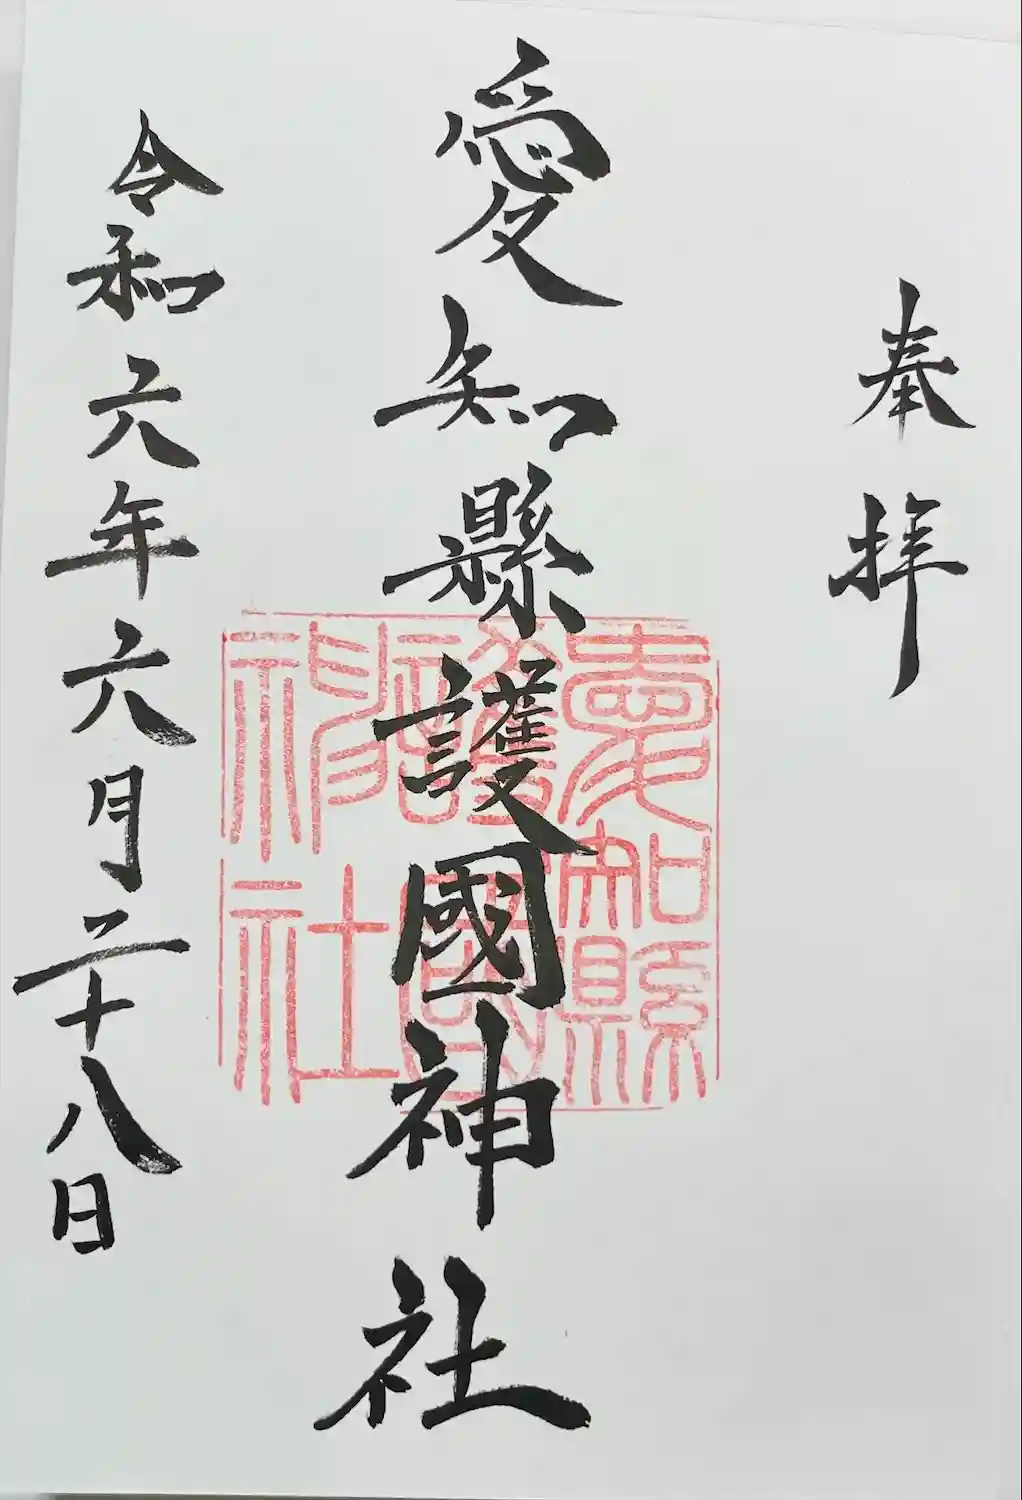 奉拝
愛知縣護國神社
愛知縣
護國
神社
令和六年六月二十八日